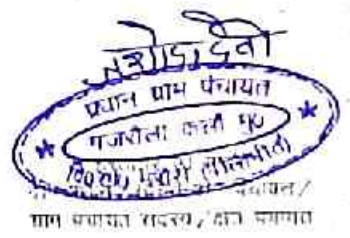 यशोदा देवी
प्रधान ग्राम पंचायत
गजरौला कलां मु०
वि०क्षे० मरौरी (पीलीभीत)
पंचायत/
ग्राम पंचायत सदस्य/क्षेत्र पंचायत